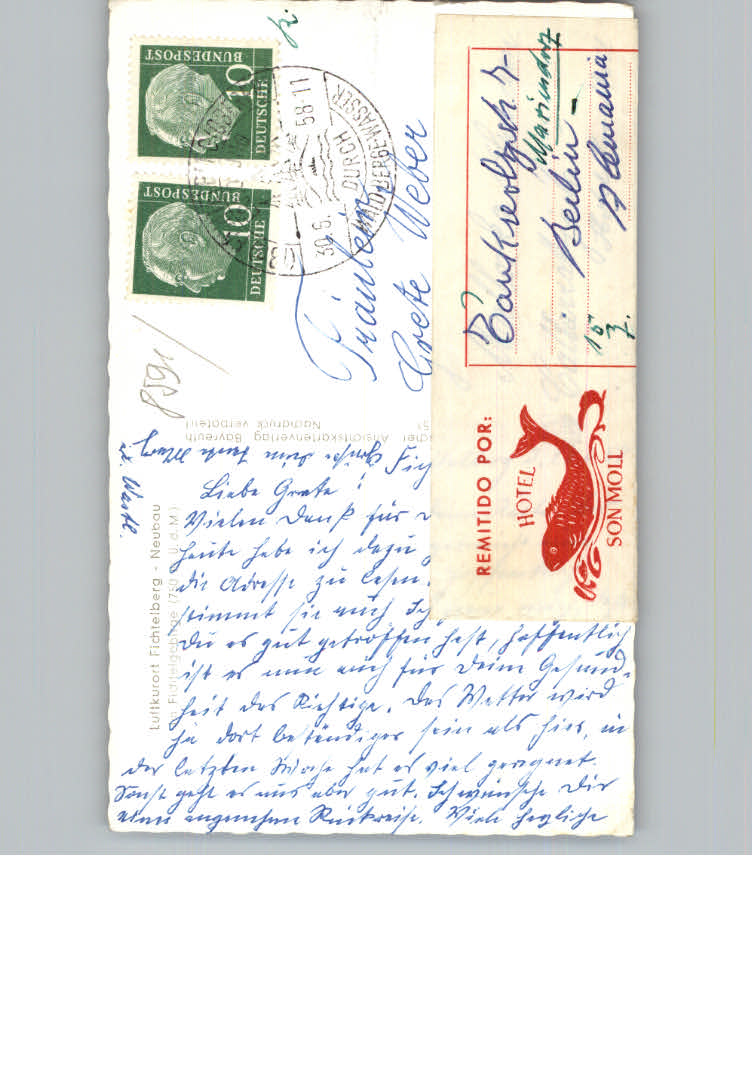 10
DEUTSCHE
BUNDESPOST
10
DEUTSCHE
BUNDESPOST
30.6. 58-11
DURCH
Fräulein
Grete Weber
8591
Ansichtskartenverlag Bayreuth
Nachdruck verboten!
Luftkurort Fichtelberg - Neubau
Fichtelgebirge (750 ü.d.M)
REMITIDO POR:
HOTEL
SON MOLL
Mariendorf
Berlin -
Alemania
Liebe Grete!
Vielen Dank für
heute habe ich dazu
die Adresse zu lesen.
stimmt sie auch
Du es gut getroffen hast, hoffentlich
ist es nun auch für Deine Gesund-
heit das Richtige. Das Wetter wird
ja dort beständiger sein als hier, in
der letzten Woche hat es viel geregnet.
Sonst geht es uns aber gut. Ich wünsche Dir
eine angenehme Rückreise. Viele herzliche